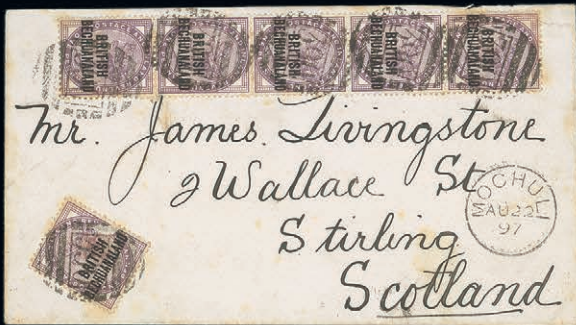 BRITISH
BECHUANALAND
BRITISH
BECHUANALAND
BRITISH
BECHUANALAND
BRITISH
BECHUANALAND
BRITISH
BECHUANALAND
Mr. James Livingstone
2 Wallace St
Stirling
Scotland
MOCHULI
AU 22
97
BRITISH
BECHUANALAND